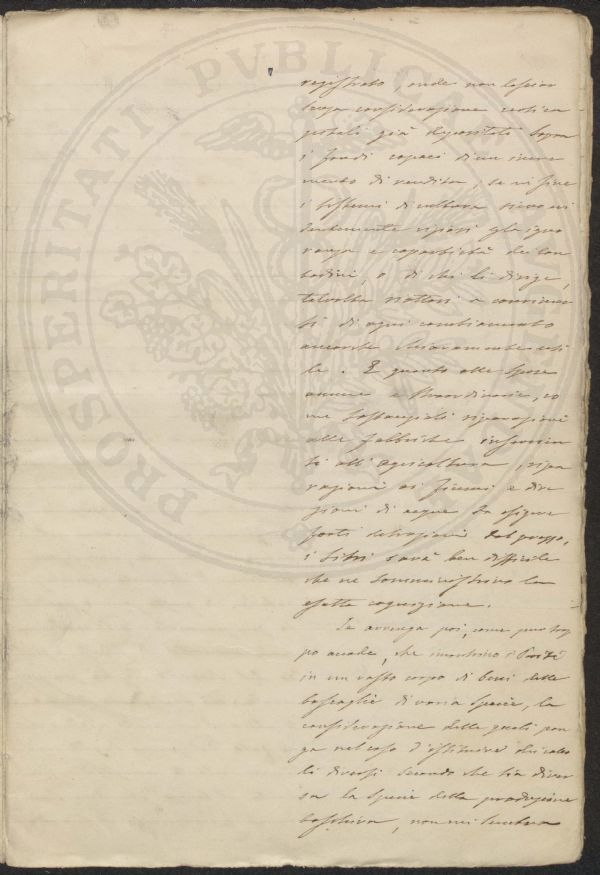 PROSPERITATI PVBLICAE
registrato, onde non lasciar
senza considerazione
già depositati sopra
i fondi capaci d'un incre
mento di rendita, se vi fine
i sistemi di cultura
riposi gl'igno
ranza e caparbietà de' con
tadini, o di chi li dirige,
talvolta
ti di ogni cambiamento
ancorché chiaramente uti
le. E quanto alle spese
annue e straordinarie, co
me sostanziali riparazioni
alle fabbriche inservien
ti all'agricoltura, ripa
razioni ai fiumi e dire
zioni di acque
forti detrazioni dal prezzo,
i libri sarà ben difficile
che ne somministrino la
esatta cognizione.
Se avvenga poi, come pur trop
po accade, che incontrino i Periti
in un vasto corpo di beni delle
boscaglie di varia specie, la
considerazione delle quali pon
ga nel caso d'istituire dei calco
li diversi secondo che sia diver
sa la specie della produzione
boschiva, non mi sembra